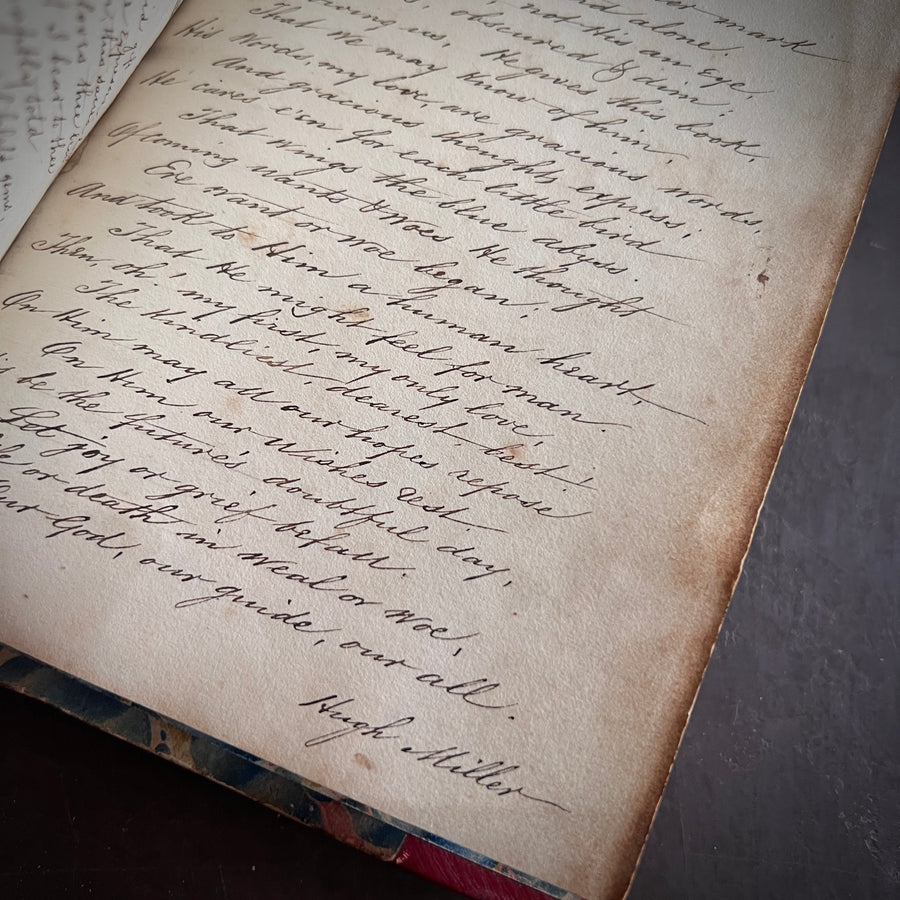 mark
alone
not His an Eye,
obscured & dim,
us, He gives this book,
That we may know of him.
His words, my love, are gracious words,
And gracious thoughts express;
He cares e'en for each little bird
That wings the blue abyss.
Of coming wants & woes He thought
Ere want or woe began!
And took to Him a human heart,
That He might feel for man.
Then, oh! my first, my only love,
The kindliest, dearest best;
On Him may all our hopes repose
On Him our wishes rest.
be the future's doubtful day,
Let joy or grief befall.
or death in weal or woe,
Our God, our guide, our all.
Hugh Miller